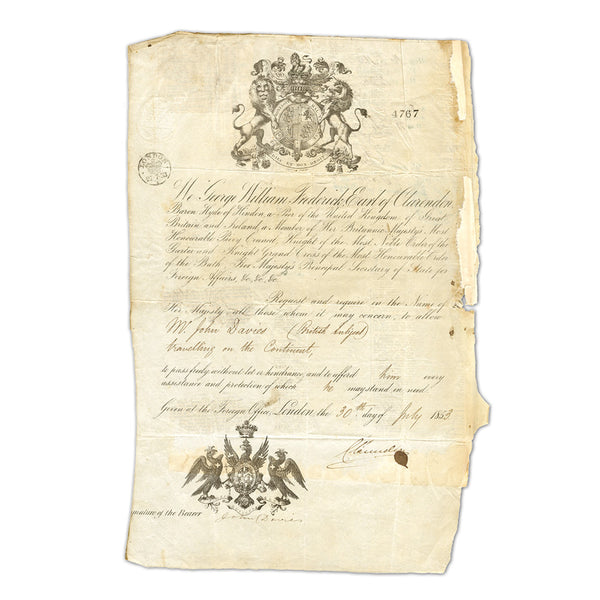 4767
LONDON
We George William Frederick, Earl of Clarendon,
Baron Hyde of Hindon, a Peer of the United Kingdom of Great
Britain and Ireland, a Member of Her Britannic Majesty's Most
Honourable Privy Council, Knight of the Most Noble Order of the
Garter and Knight Grand Cross of the Most Honourable Order
of the Bath, Her Majesty's Principal Secretary of State for
Foreign Affairs, &c, &c, &c.
Request and require in the Name of
Her Majesty, all those whom it may concern, to allow
Mr. John Davies (British Subject)
travelling on the Continent,
to pass freely without let or hindrance, and to afford him every
assistance and protection of which he may stand in need.
Given at the Foreign Office, London, the 30th day of July 1853
Clarendon
Signature of the Bearer
John Davies